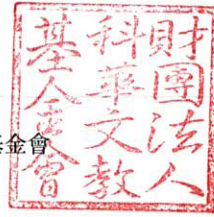 財團法人
科華文教
基金會
金會